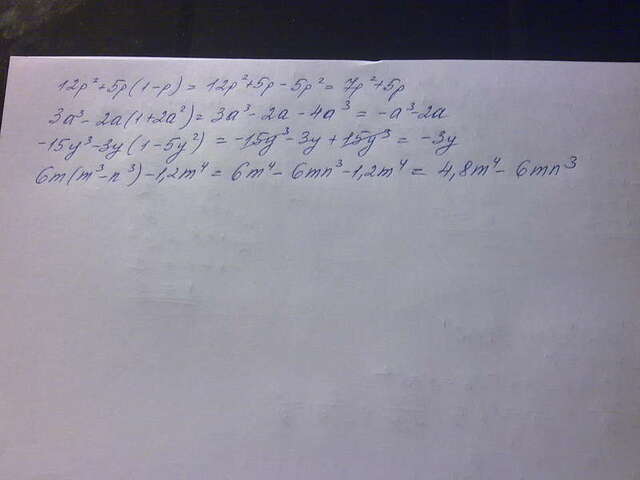 12p²+5p(1-p) = 12p²+5p-5p² = 7p²+5p
3a³-2a(1+2a²) = 3a³-2a-4a³ = -a³-2a
-15y³-3y(1-5y²) = -15y³-3y+15y³ = -3y
6m(m³-n³)-1,2m⁴ = 6m⁴-6mn³-1,2m⁴ = 4,8m⁴-6mn³